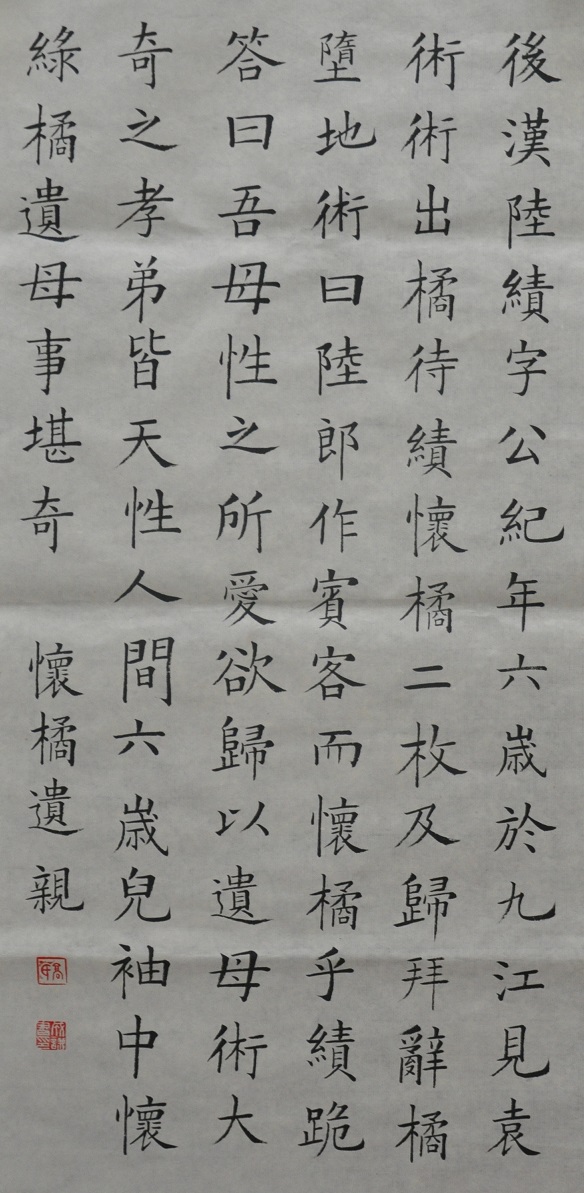 後漢陸績字公紀年六歳於九江見袁
術術出橘待績懷橘二枚及歸拜辭橘
墮地術曰陸郎作賓客而懷橘乎績跪
答曰吾母性之所愛欲歸以遺母術大
奇之孝弟皆天性人間六歳兒袖中懷
綠橘遺母事堪奇　懷橘遺親